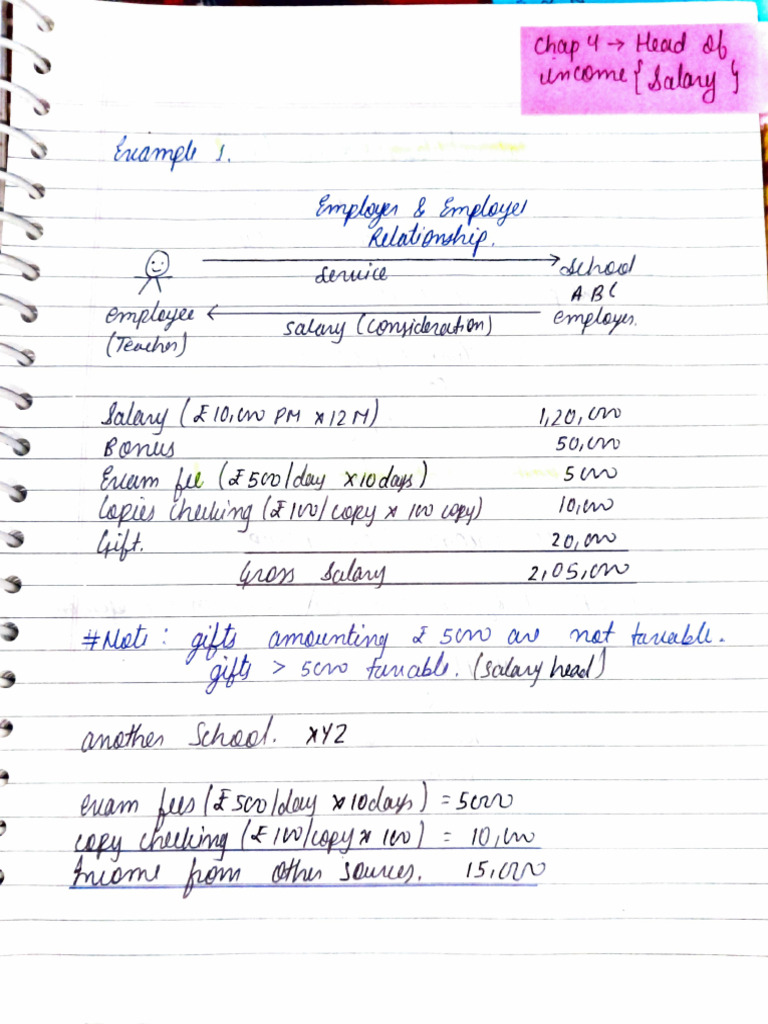 Chap 4 → Head of
income { Salary }
Example 1.
Employer & Employee
Relationship.
service
School
ABC
employee
(Teacher)
salary (consideration)
employer.
Salary (₹10,000 PM x 12 M) 1,20,000
Bonus 50,000
Exam fee (₹500/day x10days) 5000
Copies checking (₹100/copy x 100 copy) 10,000
Gift. 20,000
Gross Salary 2,05,000
#Note: gifts amounting ₹ 5000 are not taxable.
gifts > 5000 taxable. (salary head)
another School. XYZ
exam fees (₹500/day x 10days) = 5000
copy checking (₹100/copy x 100) = 10,000
Income from other sources. 15,000